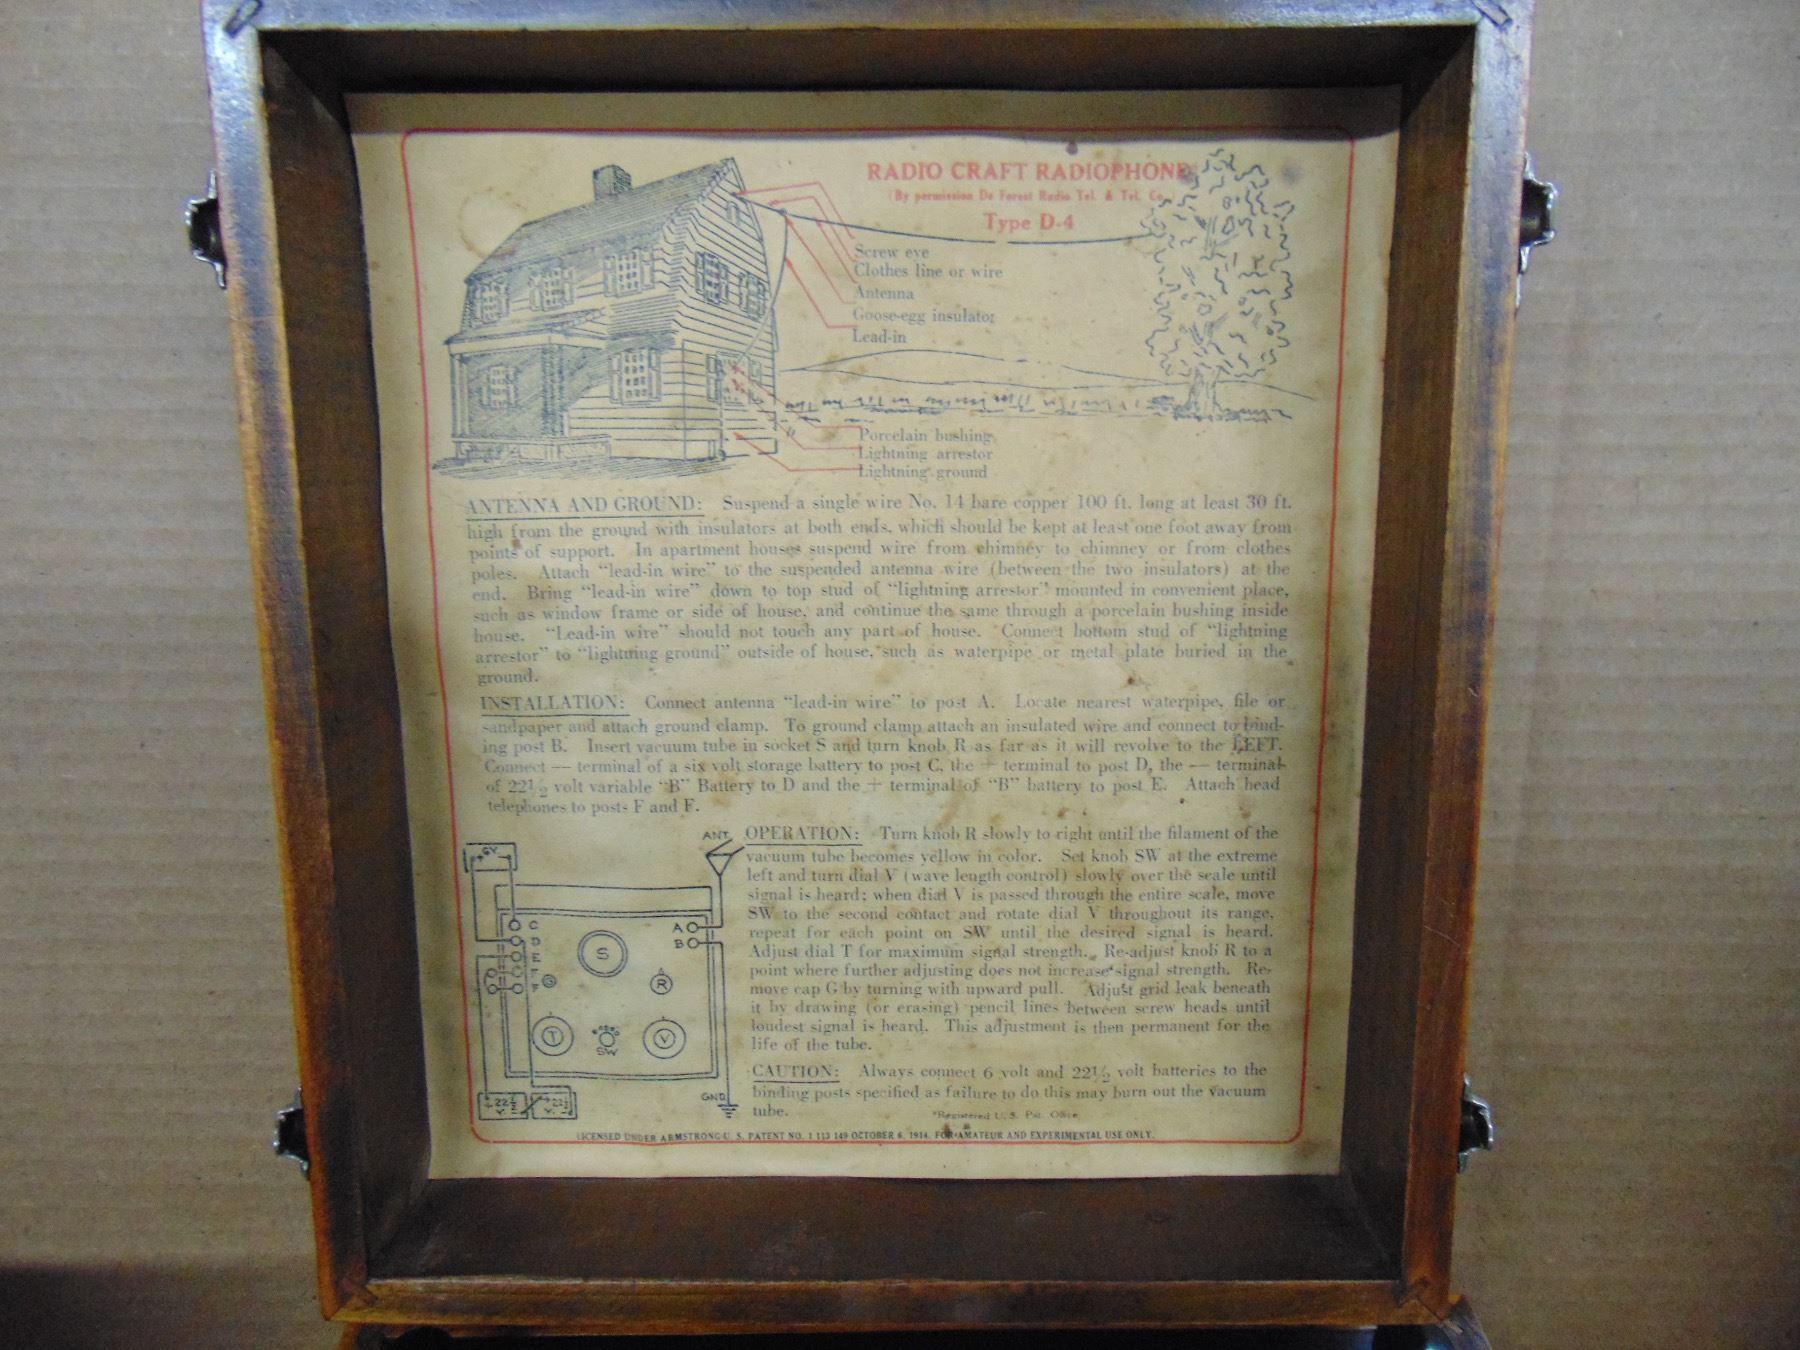 RADIO CRAFT RADIOPHONE
(By permission De Forest Radio Tel. & Tel. Co.)
Type D-4
Screw eye
Clothes line or wire
Antenna
Goose-egg insulator
Lead-in
Porcelain bushing
Lightning arrestor
Lightning ground
ANTENNA AND GROUND: Suspend a single wire No. 14 bare copper 100 ft. long at least 30 ft.
high from the ground with insulators at both ends, which should be kept at least one foot away from
points of support. In apartment houses suspend wire from chimney to chimney or from clothes
poles. Attach "lead-in wire" to the suspended antenna wire (between the two insulators) at the
end. Bring "lead-in wire" down to top stud of "lightning arrestor" mounted in convenient place,
such as window frame or side of house, and continue the same through a porcelain bushing inside
house. "Lead-in wire" should not touch any part of house. Connect bottom stud of "lightning
arrestor" to "lightning ground" outside of house, such as waterpipe or metal plate buried in the
ground.
INSTALLATION: Connect antenna "lead-in wire" to post A. Locate nearest waterpipe, file or
sandpaper and attach ground clamp. To ground clamp attach an insulated wire and connect to bind-
ing post B. Insert vacuum tube in socket S and turn knob R as far as it will revolve to the LEFT.
Connect — terminal of a six volt storage battery to post C, the + terminal to post D, the — terminal
of 22½ volt variable "B" Battery to D and the + terminal of "B" battery to post E. Attach head
telephones to posts F and F.
OPERATION: Turn knob R slowly to right until the filament of the
vacuum tube becomes yellow in color. Set knob SW at the extreme
left and turn dial V (wave length control) slowly over the scale until
signal is heard; when dial V is passed through the entire scale, move
SW to the second contact and rotate dial V throughout its range,
repeat for each point on SW until the desired signal is heard.
Adjust dial T for maximum signal strength. Re-adjust knob R to a
point where further adjusting does not increase signal strength. Re-
move cap G by turning with upward pull. Adjust grid leak beneath
it by drawing (or erasing) pencil lines between screw heads until
loudest signal is heard. This adjustment is then permanent for the
life of the tube.
CAUTION: Always connect 6 volt and 22½ volt batteries to the
binding posts specified as failure to do this may burn out the vacuum
tube.
*Registered U. S. Pat. Office
ANT.
6V.
C
D
E
F
F
G
S
A
B
R
T
SW
V
22½ V.
22½ V.
GND.
LICENSED UNDER ARMSTRONG U. S. PATENT NO. 1 113 149 OCTOBER 6, 1914. FOR AMATEUR AND EXPERIMENTAL USE ONLY.